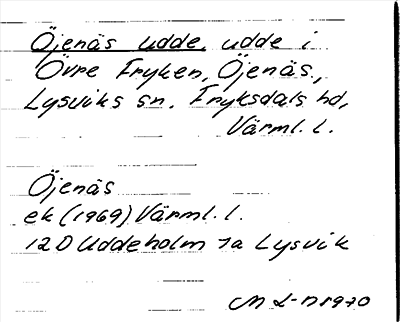 Öjenäs udde, udde i
Övre Fryken, Öjenäs,
Lysviks sn. Fryksdals hd,
Värml. l.
Öjenäs
ek (1969) Värml. l.
12 D Uddeholm 7a Lysvik
1970